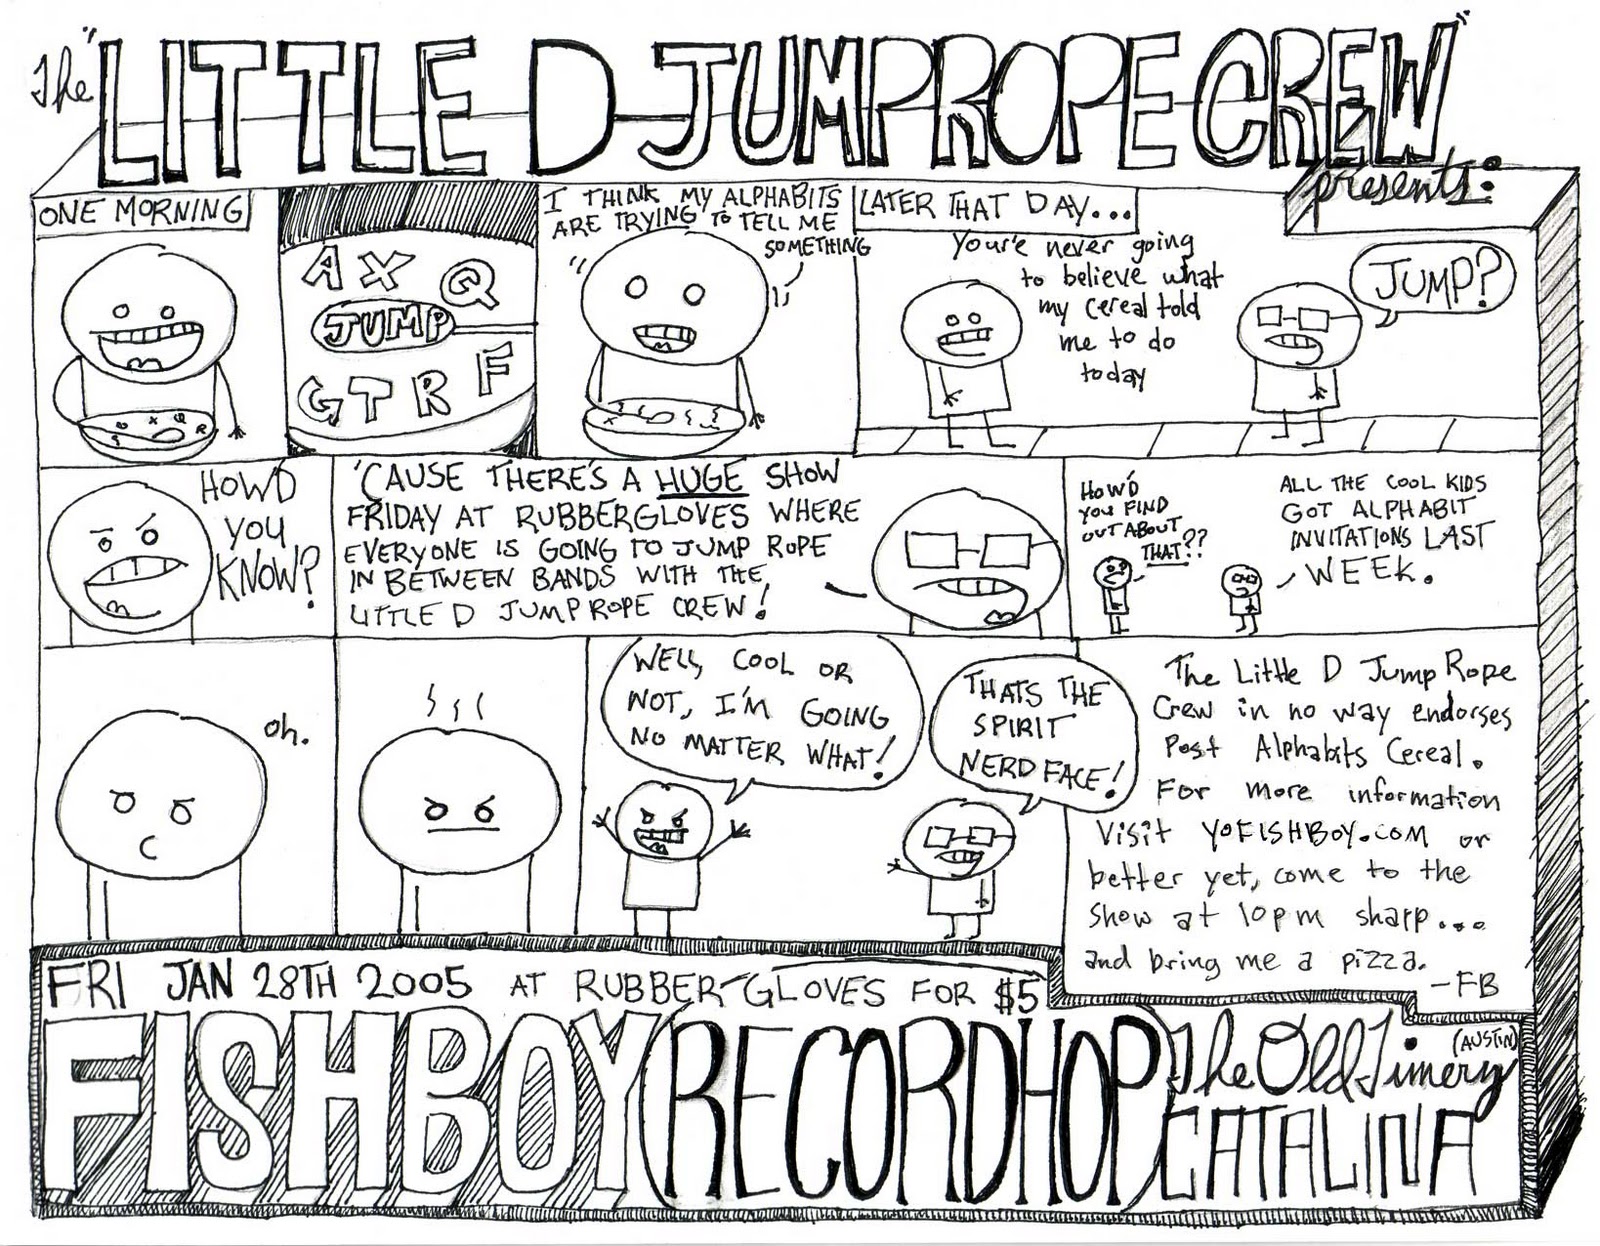 The "LITTLE D JUMPROPE CREW"
presents:
ONE MORNING
A X Q
JUMP
G T R F
I THINK MY ALPHABITS
ARE TRYING TO TELL ME
SOMETHING
LATER THAT DAY...
Your'e never going
to believe what
my cereal told
me to do
today
JUMP?
HOW'D
YOU
KNOW?
'CAUSE THERE'S A HUGE SHOW
FRIDAY AT RUBBERGLOVES WHERE
EVERYONE IS GOING TO JUMP ROPE
IN BETWEEN BANDS WITH THE
LITTLE D JUMP ROPE CREW!
HOW'D
YOU FIND
OUT ABOUT
THAT??
ALL THE COOL KIDS
GOT ALPHABIT
INVITATIONS LAST
WEEK.
oh.
WELL, COOL OR
NOT, I'M GOING
NO MATTER WHAT!
THATS THE
SPIRIT
NERD FACE!
The Little D Jump Rope
Crew in no way endorses
Post Alphabits Cereal.
For more information
Visit YOFISHBOY.COM or
better yet, come to the
show at 10pm sharp...
and bring me a pizza.
-FB
FRI JAN 28TH 2005 AT RUBBER GLOVES FOR $5
FISHBOY (RECORDHOP) The Old Timery
(AUSTIN)
CATALINA